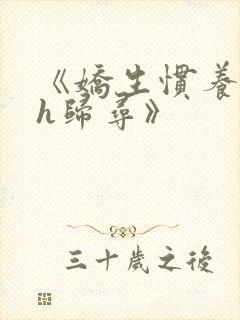 《嬌生慣養
h歸尋》
三十歲之後